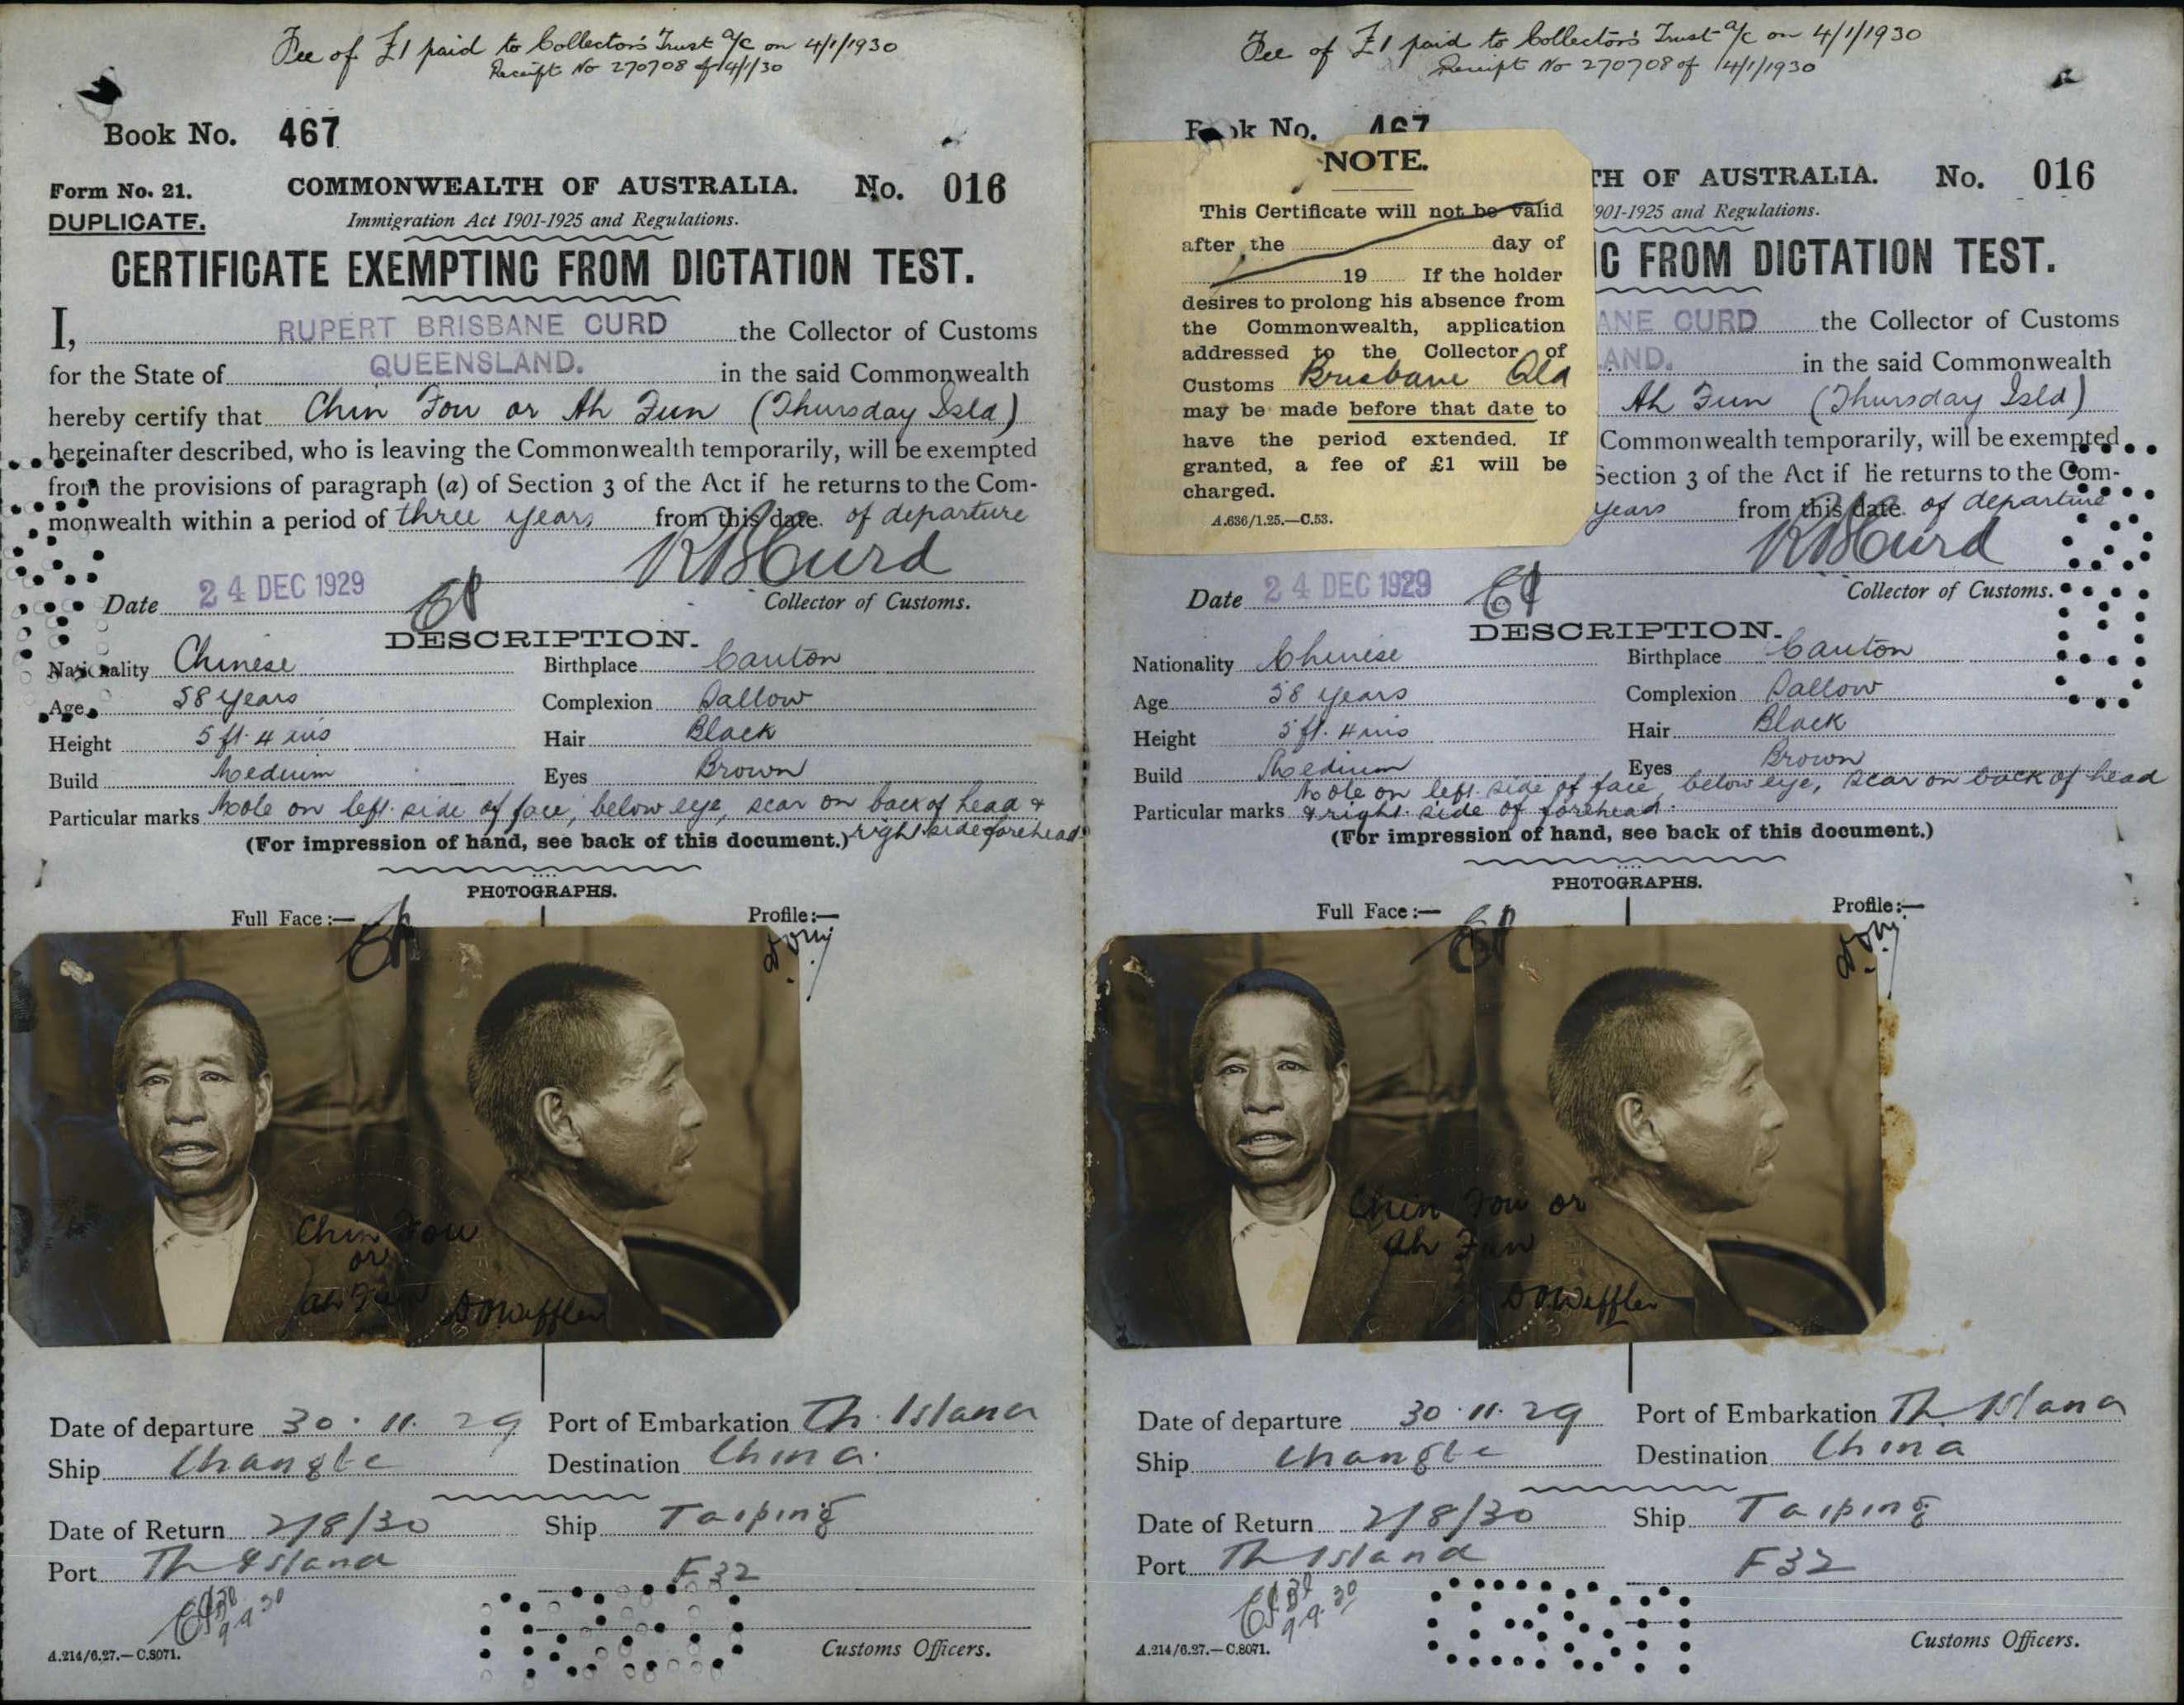 Fee of £1 paid to Collector's Trust a/c on 4/1/1930
Receipt No 270708 of 14/1/30
Book No. 467
Form No. 21.
COMMONWEALTH OF AUSTRALIA.
No. 016
DUPLICATE.
Immigration Act 1901-1925 and Regulations.
CERTIFICATE EXEMPTING FROM DICTATION TEST.
I, RUPERT BRISBANE CURD the Collector of Customs
for the State of QUEENSLAND. in the said Commonwealth
hereby certify that Chin Fou or Ah Fun (Thursday Isld)
hereinafter described, who is leaving the Commonwealth temporarily, will be exempted
from the provisions of paragraph (a) of Section 3 of the Act if he returns to the Com-
monwealth within a period of three years from this date of departure
R B Curd
Date 24 DEC 1929
Collector of Customs.
DESCRIPTION.
Nationality Chinese Birthplace Canton
Age 58 years Complexion Sallow
Height 5 ft. 4 ins Hair Black
Build Medium Eyes Brown
Particular marks Mole on left side of face, below eye, scar on back of head &
right side forehead
(For impression of hand, see back of this document.)
PHOTOGRAPHS.
Full Face:— Profile:—
Chin Fou
or
Ah Fun
Date of departure 30.11.29 Port of Embarkation Th. Island
Ship Changte Destination China.
Date of Return 2/8/30 Ship Taiping
Port Th Island F32
9.9.30
A.214/6.27.—C.8071.
Customs Officers.
Fee of £1 paid to Collector's Trust a/c on 4/1/1930
Receipt No 270708 of 14/1/1930
Book No. 467
NOTE.
This Certificate will not be valid
after the day of
19 If the holder
desires to prolong his absence from
the Commonwealth, application
addressed to the Collector of
Customs Brisbane Qld
may be made before that date to
have the period extended. If
granted, a fee of £1 will be
charged.
A.636/1.25.—C.53.
TH OF AUSTRALIA. No. 016
901-1925 and Regulations.
G FROM DICTATION TEST.
ANE CURD the Collector of Customs
AND. in the said Commonwealth
Ah Fun (Thursday Isld)
Commonwealth temporarily, will be exempted
Section 3 of the Act if he returns to the Com-
years from this date of departure
R B Curd
Date 24 DEC 1929
Collector of Customs.
DESCRIPTION.
Nationality Chinese Birthplace Canton
Age 58 years Complexion Sallow
Height 5 ft. 4 ins Hair Black
Build Medium Eyes Brown
Particular marks Mole on left side of face, below eye, scar on back of head
& right side of forehead.
(For impression of hand, see back of this document.)
PHOTOGRAPHS.
Full Face:— Profile:—
Chin Fou or
Ah Fun
Date of departure 30.11.29 Port of Embarkation Th Island
Ship Changte Destination China
Date of Return 2/8/30 Ship Taiping
Port Th Island F32
9.9.30
A.214/6.27.—C.8071.
Customs Officers.